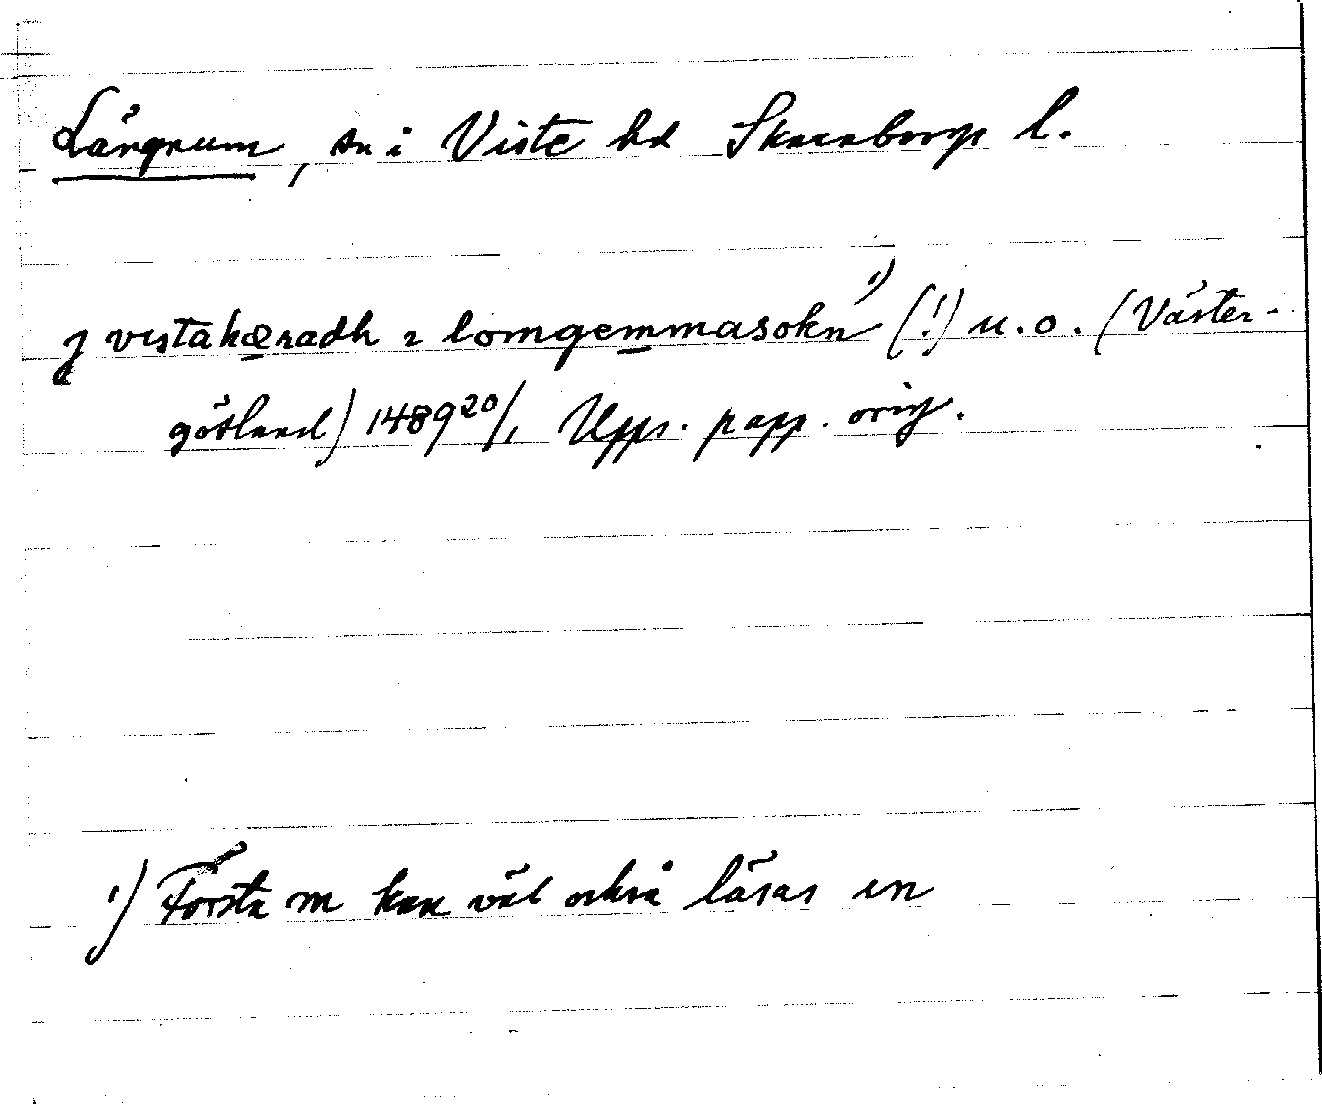 Längnum, sn i Viste hd Skaraborgs l.
j vistahæradh ⁊ lomgemmasokn ¹) (!) u. o. (Väster-
götland) 1489 20/1 Upps. papp. orig.
¹) Första m kan väl också läsas in